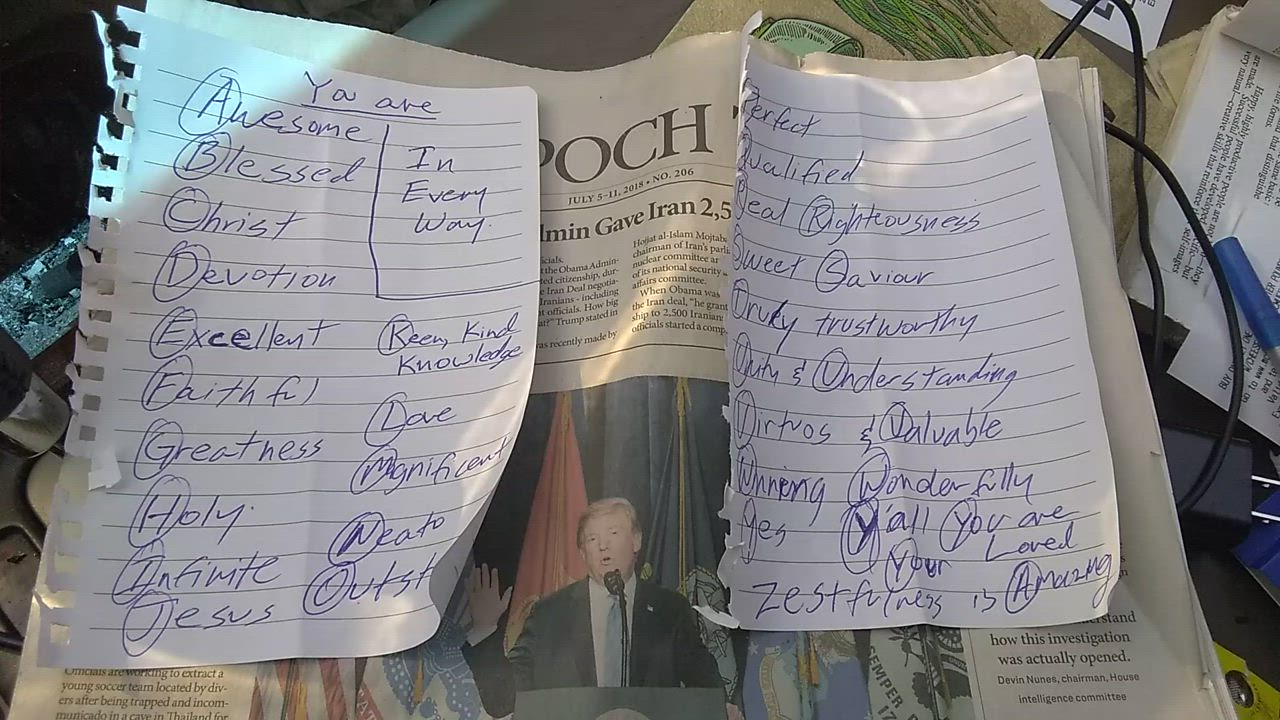 You are
Awesome
Blessed
Christ
Devotion
In
Every
Way.
Excellent
Faithful
Greatness
Holy.
Infinite
Jesus
Keen, Kind
Knowledge
Love
Magnificent
Neato
Outst
POCH
JULY 5–11, 2018 • NO. 206
lmin Gave Iran 2,5
icials.
the Obama Admin-
ted citizenship, dur-
e Iran Deal negotia-
Iranians - including
t officials. How big
at?" Trump stated in
as recently made by
Hojjat al-Islam Mojtaba
chairman of Iran's parli
nuclear committee ar
of its national security
affairs committee.
When Obama was
the Iran deal, "he grant
ship to 2,500 Iranians
officials started a comp
Perfect
Qualified
Real Righteousness
Sweet Saviour
Truly trustworthy
Unity & Understanding
Virtuos & Valuable
Winning Wonderfully
Yes Y'all You are
Your Loved
Zestfulness is Amazing
SEMPER
17
erstand
how this investigation
was actually opened.
Devin Nunes, chairman, House
intelligence committee
Officials are working to extract a
young soccer team located by div-
ers after being trapped and incom-
municado in a cave in Thailand for
Happy, highly productive people are not self-